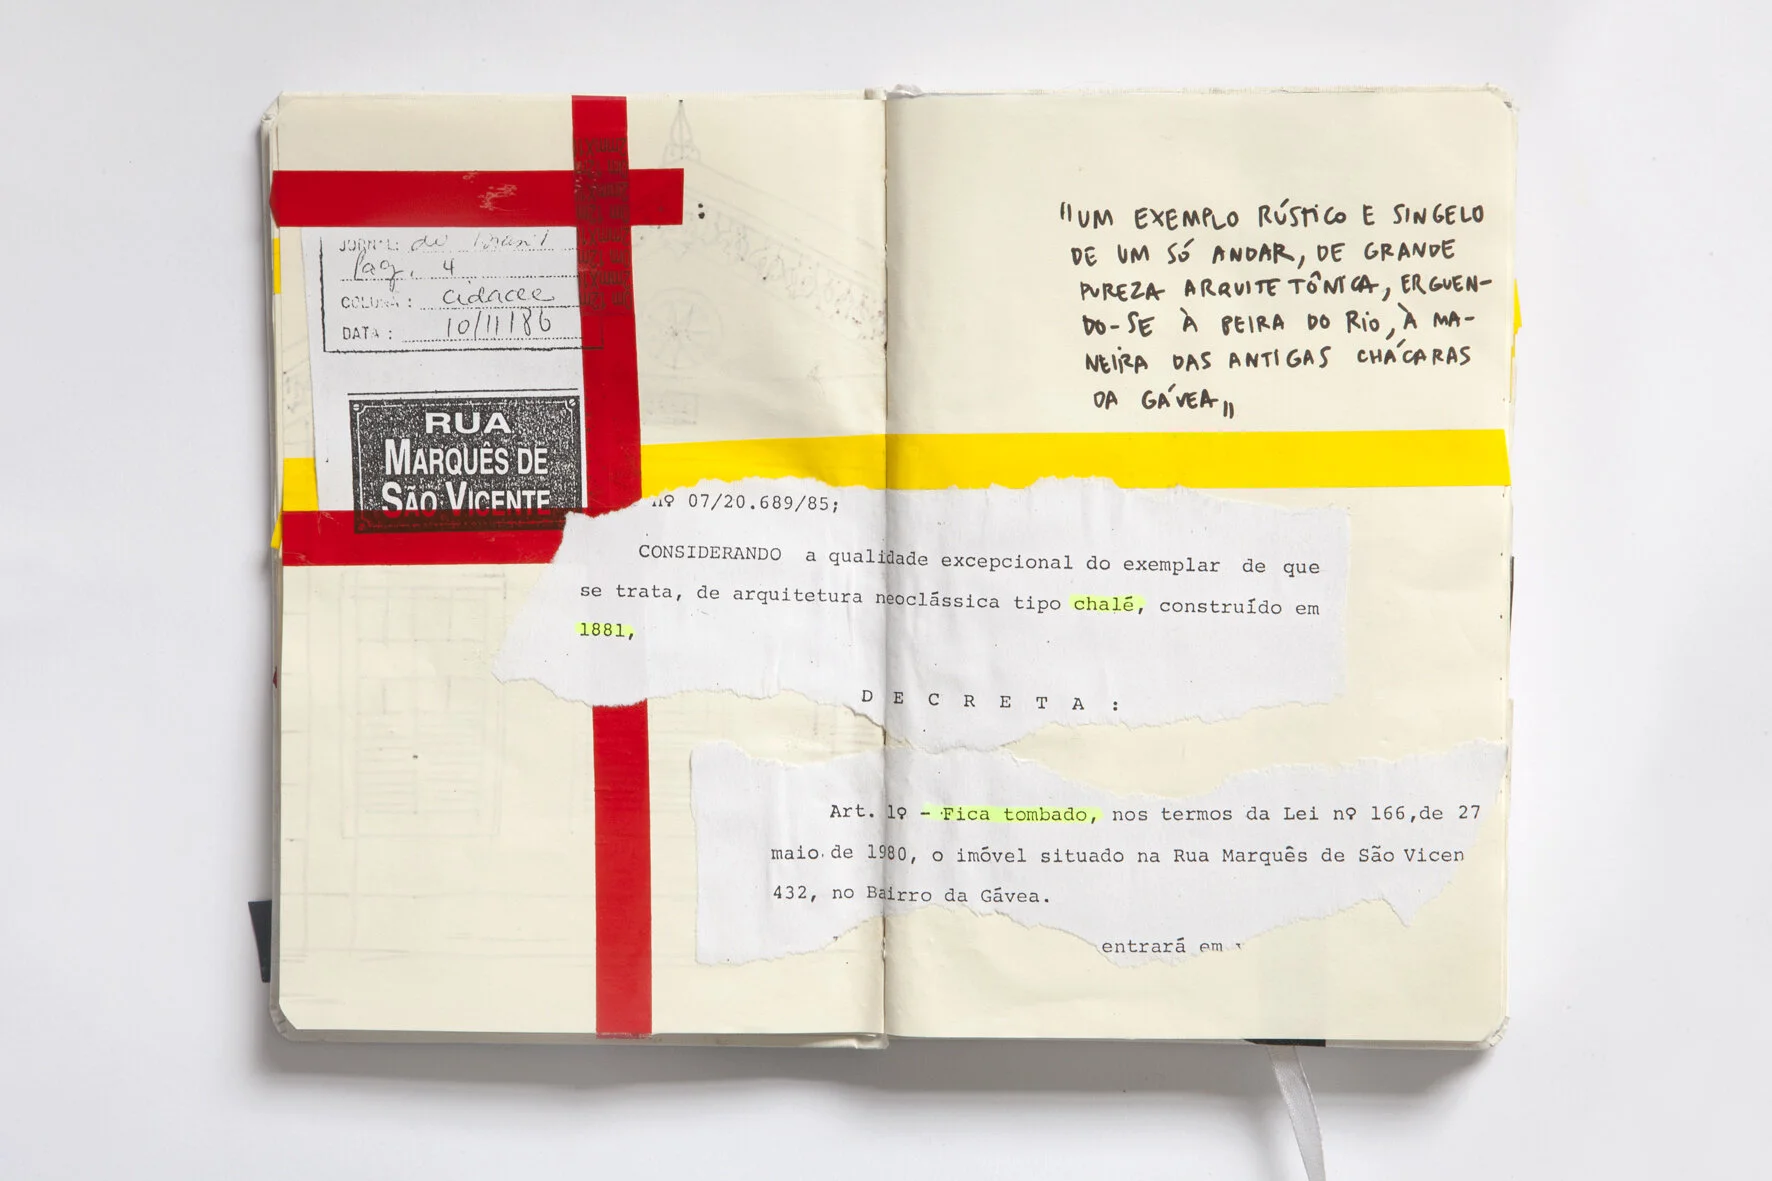 JORNAL: do Brasil
Pag. 4
COLUNA: cidade
DATA: 10/11/86
RUA
MARQUÊS DE
SÃO VICENTE
"UM EXEMPLO RÚSTICO E SINGELO
DE UM SÓ ANDAR, DE GRANDE
PUREZA ARQUITETÔNICA, ERGUEN-
DO-SE À BEIRA DO RIO, À MA-
NEIRA DAS ANTIGAS CHÁCARAS
DA GÁVEA"
nº 07/20.689/85;
CONSIDERANDO a qualidade excepcional do exemplar de que
se trata, de arquitetura neoclássica tipo chalé, construído em
1881,
D E C R E T A :
Art. 1º - Fica tombado, nos termos da Lei nº 166,de 27
maio de 1980, o imóvel situado na Rua Marquês de São Vicen
432, no Bairro da Gávea.
entrará em